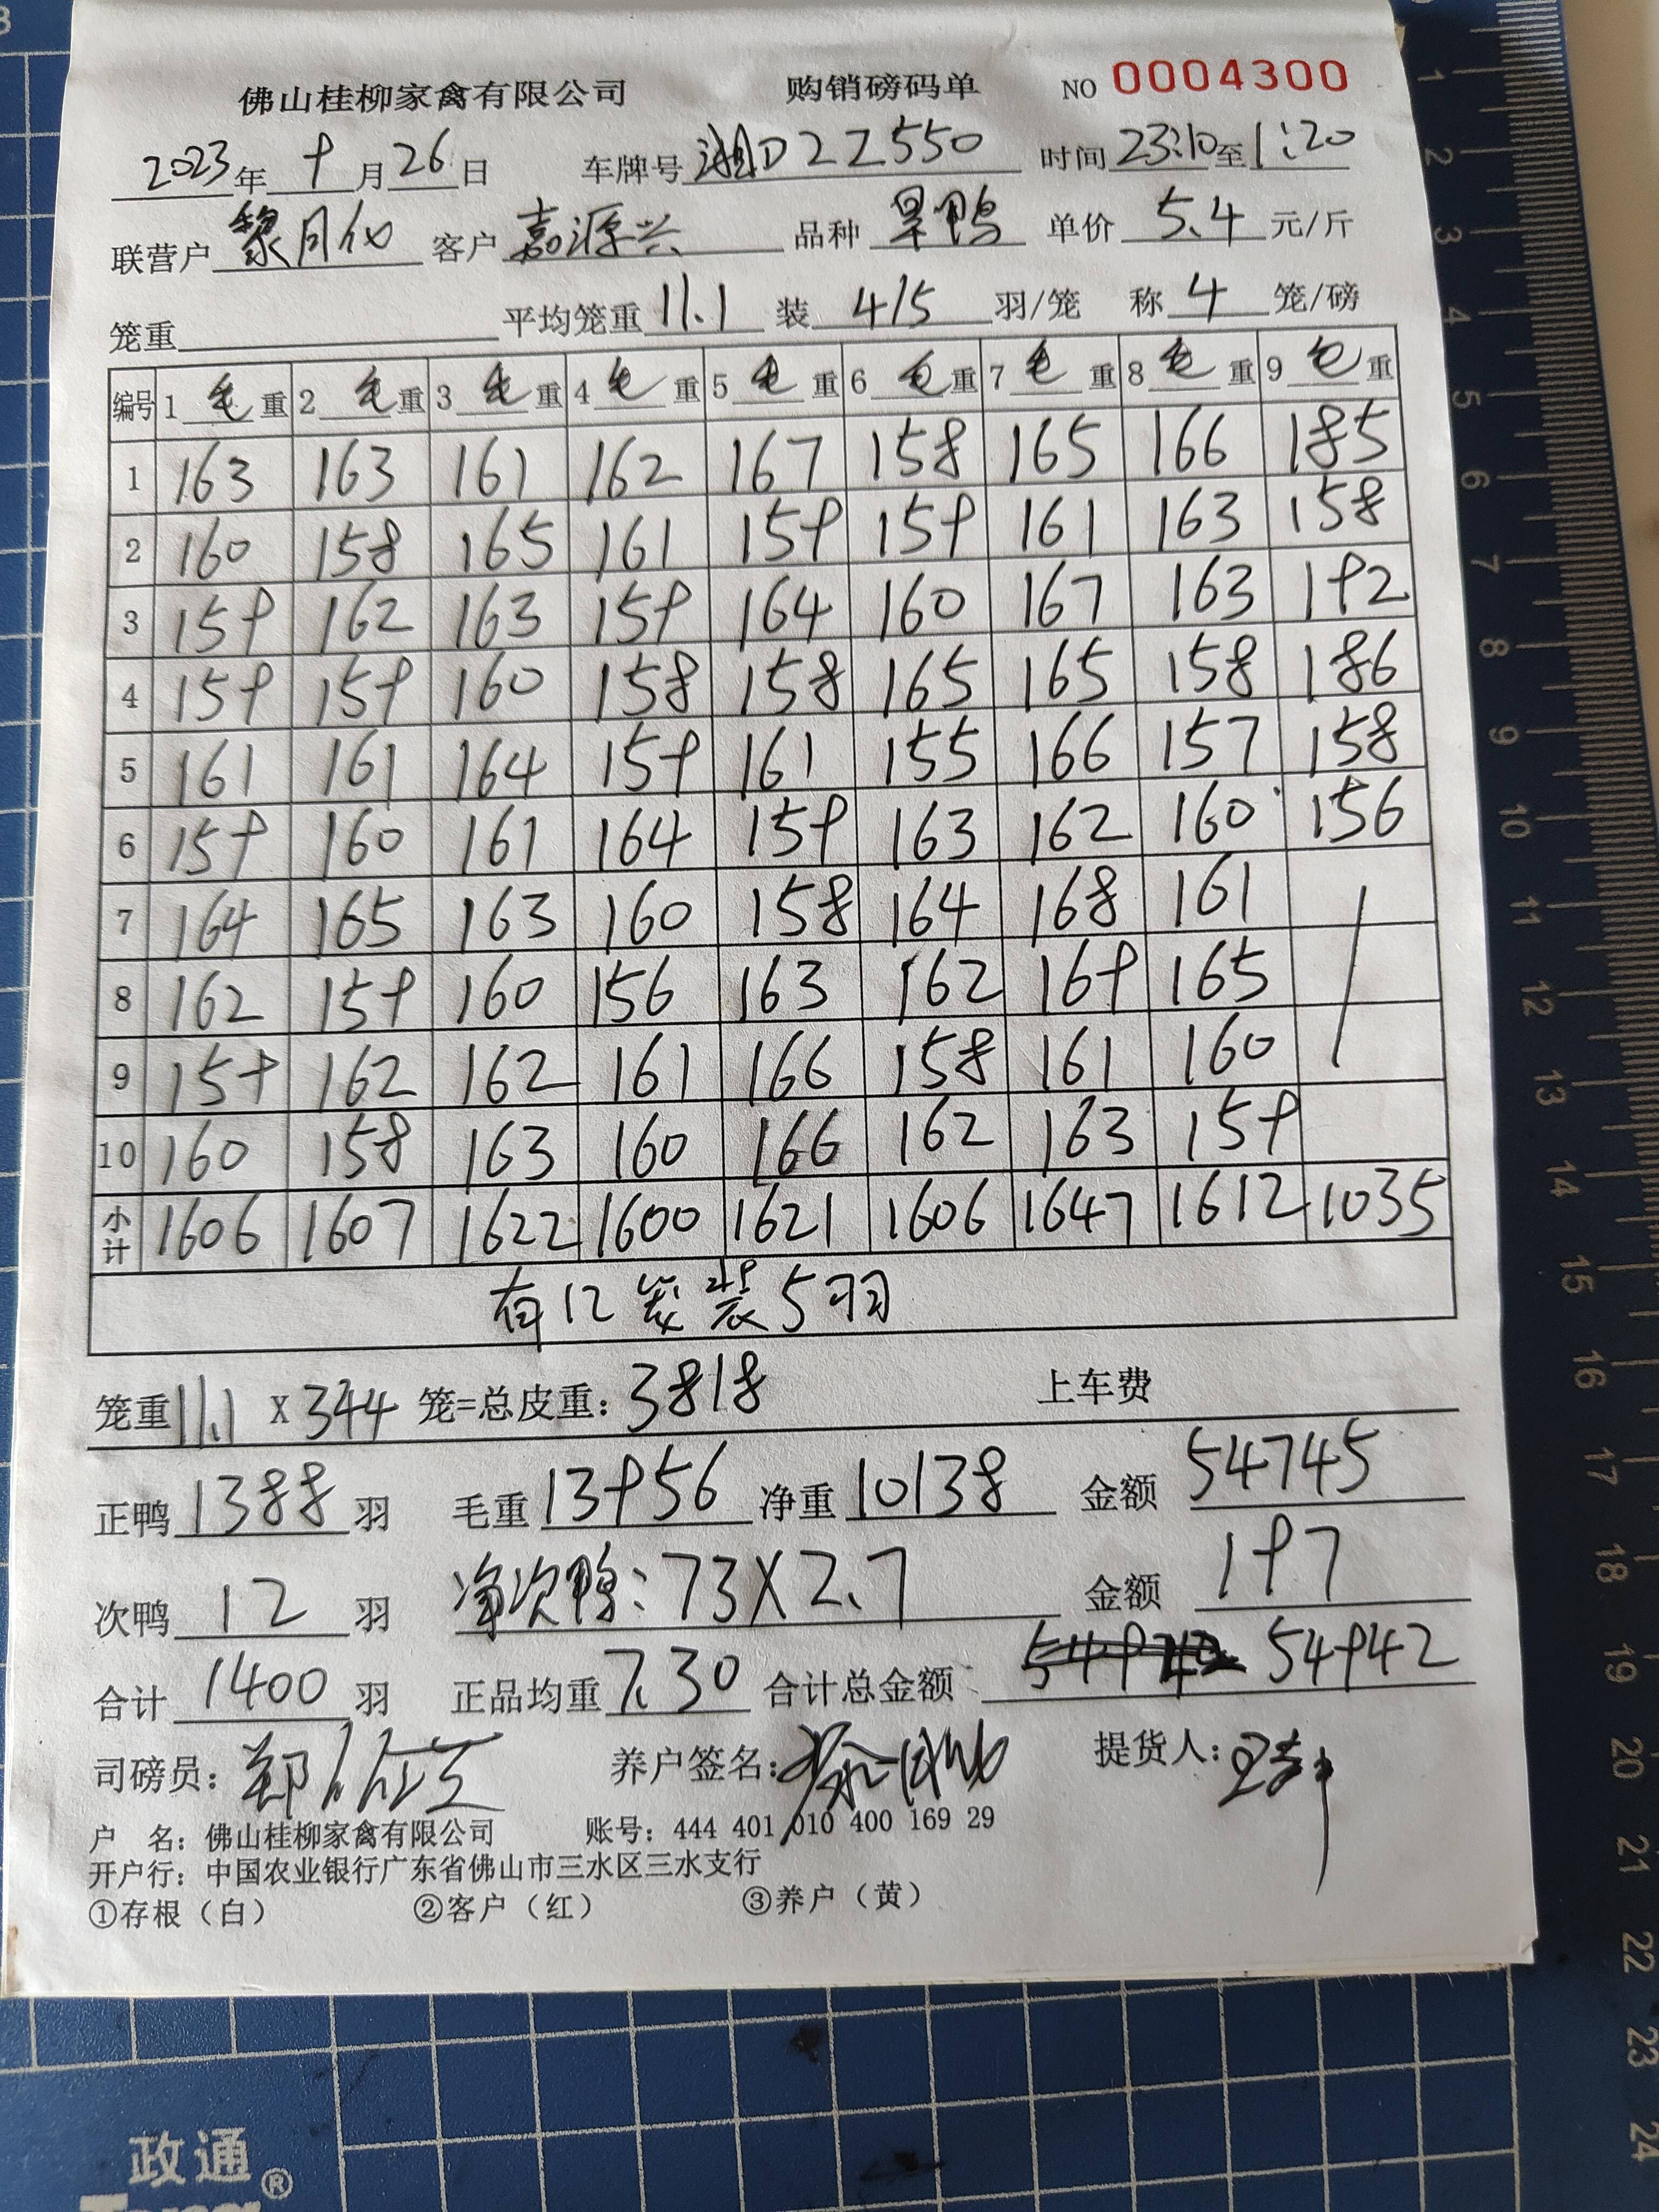 佛山桂柳家禽有限公司 购销磅码单 NO 0004300
2023年 9月26日 车牌号 湘D2Z550 时间 23:10至1:20
联营户 黎月仪 客户 嘉源兴 品种 旱鸭 单价 5.4 元/斤
笼重 平均笼重 11.1 装 4/5 羽/笼 称 4 笼/磅
编号 1 毛重 2 毛重 3 毛重 4 毛重 5 毛重 6 毛重 7 毛重 8 毛重 9 毛重
1 163 163 161 162 167 158 165 166 185
2 160 158 165 161 159 159 161 163 158
3 159 162 163 159 164 160 167 163 192
4 159 159 160 158 158 165 165 158 186
5 161 161 164 159 161 155 166 157 158
6 159 160 161 164 159 163 162 160 156
7 164 165 163 160 158 164 168 161
8 162 159 160 156 163 162 169 165
9 159 162 162 161 166 158 161 160
10 160 158 163 160 166 162 163 159
小计 1606 1607 1622 1600 1621 1606 1647 1612 1035
有12笼装5羽
笼重 11.1 X 344 笼=总皮重：3818 上车费
正鸭 1388 羽 毛重 13956 净重 10138 金额 54745
次鸭 12 羽 净次鸭：73X2.7 金额 197
合计 1400 羽 正品均重 7.30 合计总金额 54942
司磅员： 养户签名： 提货人：
户 名：佛山桂柳家禽有限公司 账号：444 401 010 400 169 29
开户行：中国农业银行广东省佛山市三水区三水支行
①存根（白） ②客户（红） ③养户（黄）
1 2 3 4 5 6 7 8 9 10 11 12 13 14 15 16 17 18 19 20 21 22 23 24
政通®